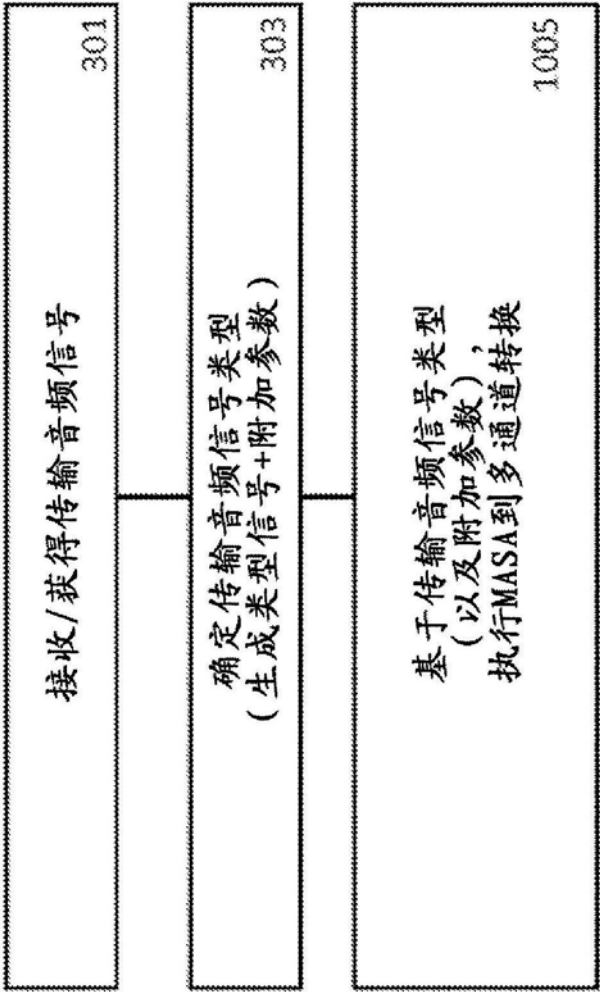 接收/获得传输音频信号
301
确定传输音频信号类型
(生成类型信号+附加参数)
303
基于传输音频信号类型
(以及附加参数),
执行MASA到多通道转换
1005